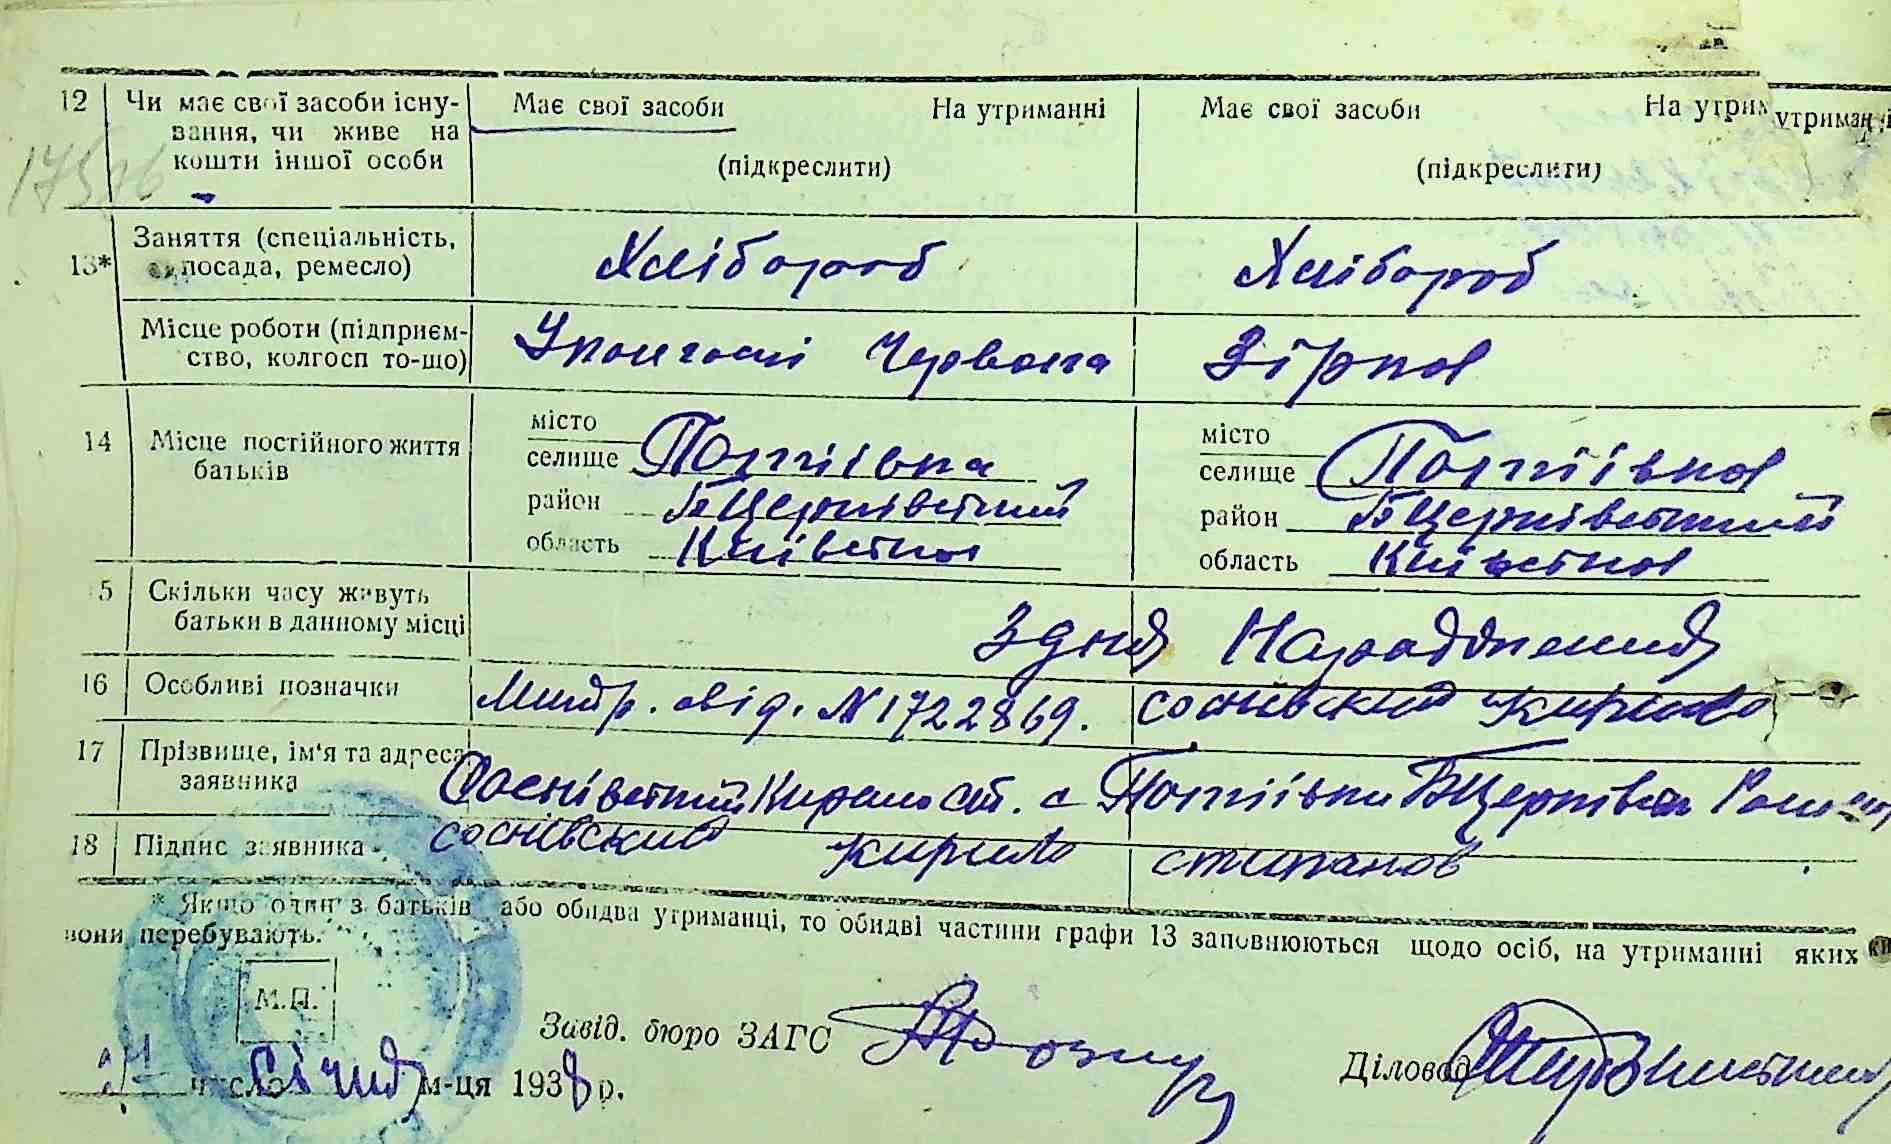 12 Чи має свої засоби існу- Має свої засоби На утриманні Має свої засоби На утрим утриманні
вання, чи живе на
кошти іншої особи (підкреслити) (підкреслити)
13* Заняття (спеціальність, Хлібороб Хлібороб
посада, ремесло)
Місце роботи (підприєм- Уколгоспі Червона Зірка
ство, колгосп то-що)
14 Місце постійного життя місто місто
батьків селище Потіївка селище Потіївка
район БЦерківський район БЦерківський
область Київська область Київська
5 Скільки часу живуть З дня Народження
батьки в данному місці
16 Особливі позначки Метр. свід. №1722869. соснівский кирило
17 Прізвище, ім'я та адреса Соснівський Кирило Ст. с Потіївки БЦерківськ
заявника
18 Підпис заявника соснівский кирило стипанов
* Якщо один з батьків або обидва утриманці, то обидві частини графи 13 заповнюються щодо осіб, на утриманні яких
вони перебувають.
М.П.
Завід. бюро ЗАГС
Діловод
число Січня м-ця 1938 р.